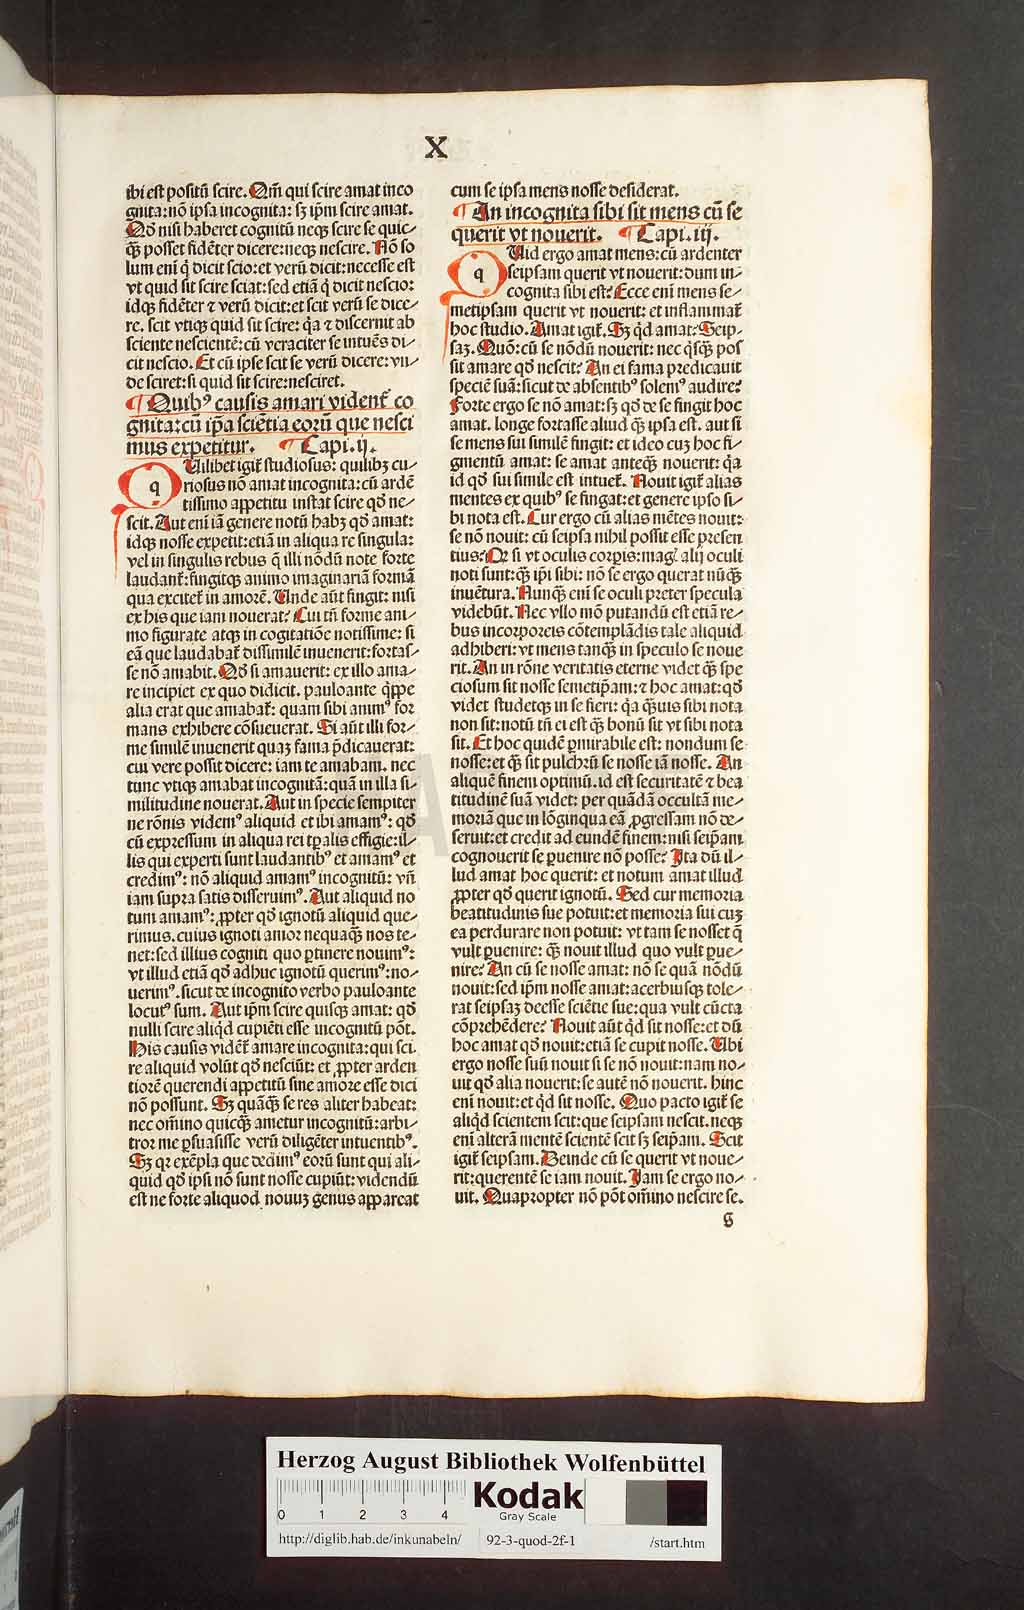 X
ibi est positū scire. Qm̄ qui scire amat inco
gnita: nō ipsa incognita: sꝫ ip̄m scire amat.
Qđ nisi haberet cognitū neqꝫ scire se quic-
q̄ꝫ posset fidēter dicere: neqꝫ nescire. Nō so
lum eni q̇ dicit scio: et verū dicit: necesse est
vt quid sit scire sciat: sed etiā q̇ dicit nescio:
idqꝫ fidēter ⁊ verū dicit: et scit verū se dice-
re. scit vtiqꝫ quid sit scire: q̇a ⁊ discernit ab
sciente nescientē: cū veraciter se intuēs di-
cit nescio. Et cū ipse scit se verū dicere: vn-
de sciret: si quid sit scire: nesciret.
¶ Quibꝰ causis amari vident̄ co
gnita: cū ip̄a sciētia eorū que nesci
mus expetitur. ¶ Capi. ij.
QUilibet igit̄ studiosus: quilibꝫ cu-
riosus nō amat incognita: cū ardē
tissimo appetitu instat scire qđ ne-
scit. Aut eni iā genere notū habꝫ qđ amat:
idqꝫ nosse expetit: etiā in aliqua re singula:
vel in singulis rebus q̄ illi nōdū note forte
laudant̄: fingitqꝫ animo imaginariā formā
qua excitet̄ in amorē. Unde aūt fingit: nisi
ex his que iam nouerat? Cui tn̄ forme ani-
mo figurate atqꝫ in cogitatiōe notissime: si
eā que laudabat̄ dissimilē inuenerit: fortas-
se nō amabit. Qđ si amauerit: ex illo ama-
re incipiet ex quo didicit. pauloante q̇ppe
alia erat que amabat̄: quam sibi animꝰ for
mans exhibere cōsueuerat. Si aūt illi for-
me similē inuenerit quaꝫ fama p̄dicauerat:
cui vere possit dicere: iam te amabam. nec
tunc vtiqꝫ amabat incognitā: quā in illa si-
militudine nouerat. Aut in specie sempiter
ne rōnis videmꝰ aliquid et ibi amamꝰ: qđ
cū expressum in aliqua rei tp̄alis effigie: il-
lis qui experti sunt laudantibꝰ et amamꝰ et
credimꝰ: nō aliquid amamꝰ incognitū: vn̄
iam supra satis disseruimꝰ. Aut aliquid no
tum amamꝰ: ꝓpter qđ ignotū aliquid que-
rimus. cuius ignoti amor nequaq̄ꝫ nos te-
net: sed illius cogniti quo ꝑtinere nouimꝰ:
vt illud etiā qđ adhuc ignotū querimꝰ: no-
uerimꝰ. sicut de incognito verbo pauloante
locutꝰ sum. Aut ip̄m scire quisqꝫ amat: qđ
nulli scire aliq̇d cupiēti esse incognitū pōt.
His causis vident̄ amare incognita: qui sci
re aliquid volūt qđ nesciūt: et ꝓpter arden
tiorē querendi appetitū sine amore esse dici
nō possunt. Sꝫ quāq̄ꝫ se res aliter habeat:
nec om̄ino quicq̄ꝫ ametur incognitū: arbi-
tror me ꝑsuasisse verū diligēter intuentibꝰ.
Sꝫ qr exēpla que dedimꝰ eorū sunt qui ali-
quid qđ ipsi nō sunt nosse cupiūt: videndū
est ne forte aliquod nouuꝫ genus appareat
cum se ipsa mens nosse desiderat.
¶ An incognita sibi sit mens cū se
querit vt nouerit. ¶ Capi. iij.
QUid ergo amat mens: cū ardenter
seipsam querit vt nouerit: dum in-
cognita sibi est? Ecce eni mens se-
metipsam querit vt nouerit: et inflammat̄
hoc studio. Amat igit̄. Sꝫ q̇d amat? Seip-
saꝫ. Quō: cū se nōdū nouerit: nec q̇sq̄ꝫ pos
sit amare qđ nescit? An ei fama predicauit
speciē suā: sicut de absentibꝰ solemꝰ audire?
Forte ergo se nō amat: sꝫ qđ de se fingit hoc
amat. longe fortasse aliud q̄ꝫ ipsa est. aut si
se mens sui similē fingit: et ideo cuꝫ hoc fi-
gmentū amat: se amat anteq̄ꝫ nouerit: q̇a
id qđ sui simile est intuet̄. Nouit igit̄ alias
mentes ex quibꝰ se fingat: et genere ipso si-
bi nota est. Cur ergo cū alias mētes nouit:
se nō nouit: cū seipsa nihil possit esse presen
tius? Qr si vt oculis corpis: magꝭ alij oculi
noti sunt: q̄ꝫ ip̄i sibi: nō se ergo querat nūq̄ꝫ
inuētura. Nunq̄ꝫ eni se oculi preter specula
videbūt. Nec vllo mō putandū est etiā re-
bus incorporeis cōtemplādis tale aliquid
adhiberi: vt mens tanq̄ꝫ in speculo se noue
rit. An in rōne veritatis eterne videt q̄ꝫ spe
ciosum sit nosse semetip̄am: ⁊ hoc amat: qđ
videt studetqꝫ in se fieri: q̇a q̄ꝫuis sibi nota
non sit: notū tn̄ ei est q̄ꝫ bonū sit vt sibi nota
sit. Et hoc quidē ꝑmirabile est: nondum se
nosse: et q̄ꝫ sit pulchrū se nosse iā nosse. An
aliquē finem optimū. id est securitatē ⁊ bea
titudinē suā videt: per quādā occultā me-
moriā que in lōginqua eā ꝓgressam nō de-
seruit: et credit ad eundē finem nisi seip̄am
cognouerit se ꝑuenire nō posse? Ita dū il-
lud amat hoc querit: et notum amat illud
ꝓpter qđ querit ignotū. Sed cur memoria
beatitudinis sue potuit: et memoria sui cuꝫ
ea perdurare non potuit: vt tam se nosset q̄
vult ꝑuenire: q̄ꝫ nouit illud quo vult ꝑue-
nire? An cū se nosse amat: nō se quā nōdū
nouit: sed ip̄m nosse amat: acerbiusqꝫ tole-
rat seipsaꝫ deesse sciētie sue: qua vult cūcta
cōprehēdere? Nouit aūt q̇d sit nosse: et dū
hoc amat qđ nouit: etiā se cupit nosse. Ubi
ergo nosse suū nouit si se nō nouit: nam no-
uit qđ alia nouerit: se autē nō nouerit. hinc
eni nouit: et q̇d sit nosse. Quo pacto igit̄ se
aliq̇d scientem scit: que seipsam nescit. neqꝫ
eni alterā mentē scientē scit sꝫ seip̄am. Scit
igit̄ seipsam. Deinde cū se querit vt noue-
rit: querentē se iam nouit. Iam se ergo no-
uit. Quapropter nō pōt om̄ino nescire se.
G
Herzog August Bibliothek Wolfenbüttel
0 1 2 3 4
Kodak
Gray Scale
http://diglib.hab.de/inkunabeln/ 92-3-quod-2f-1 /start.htm